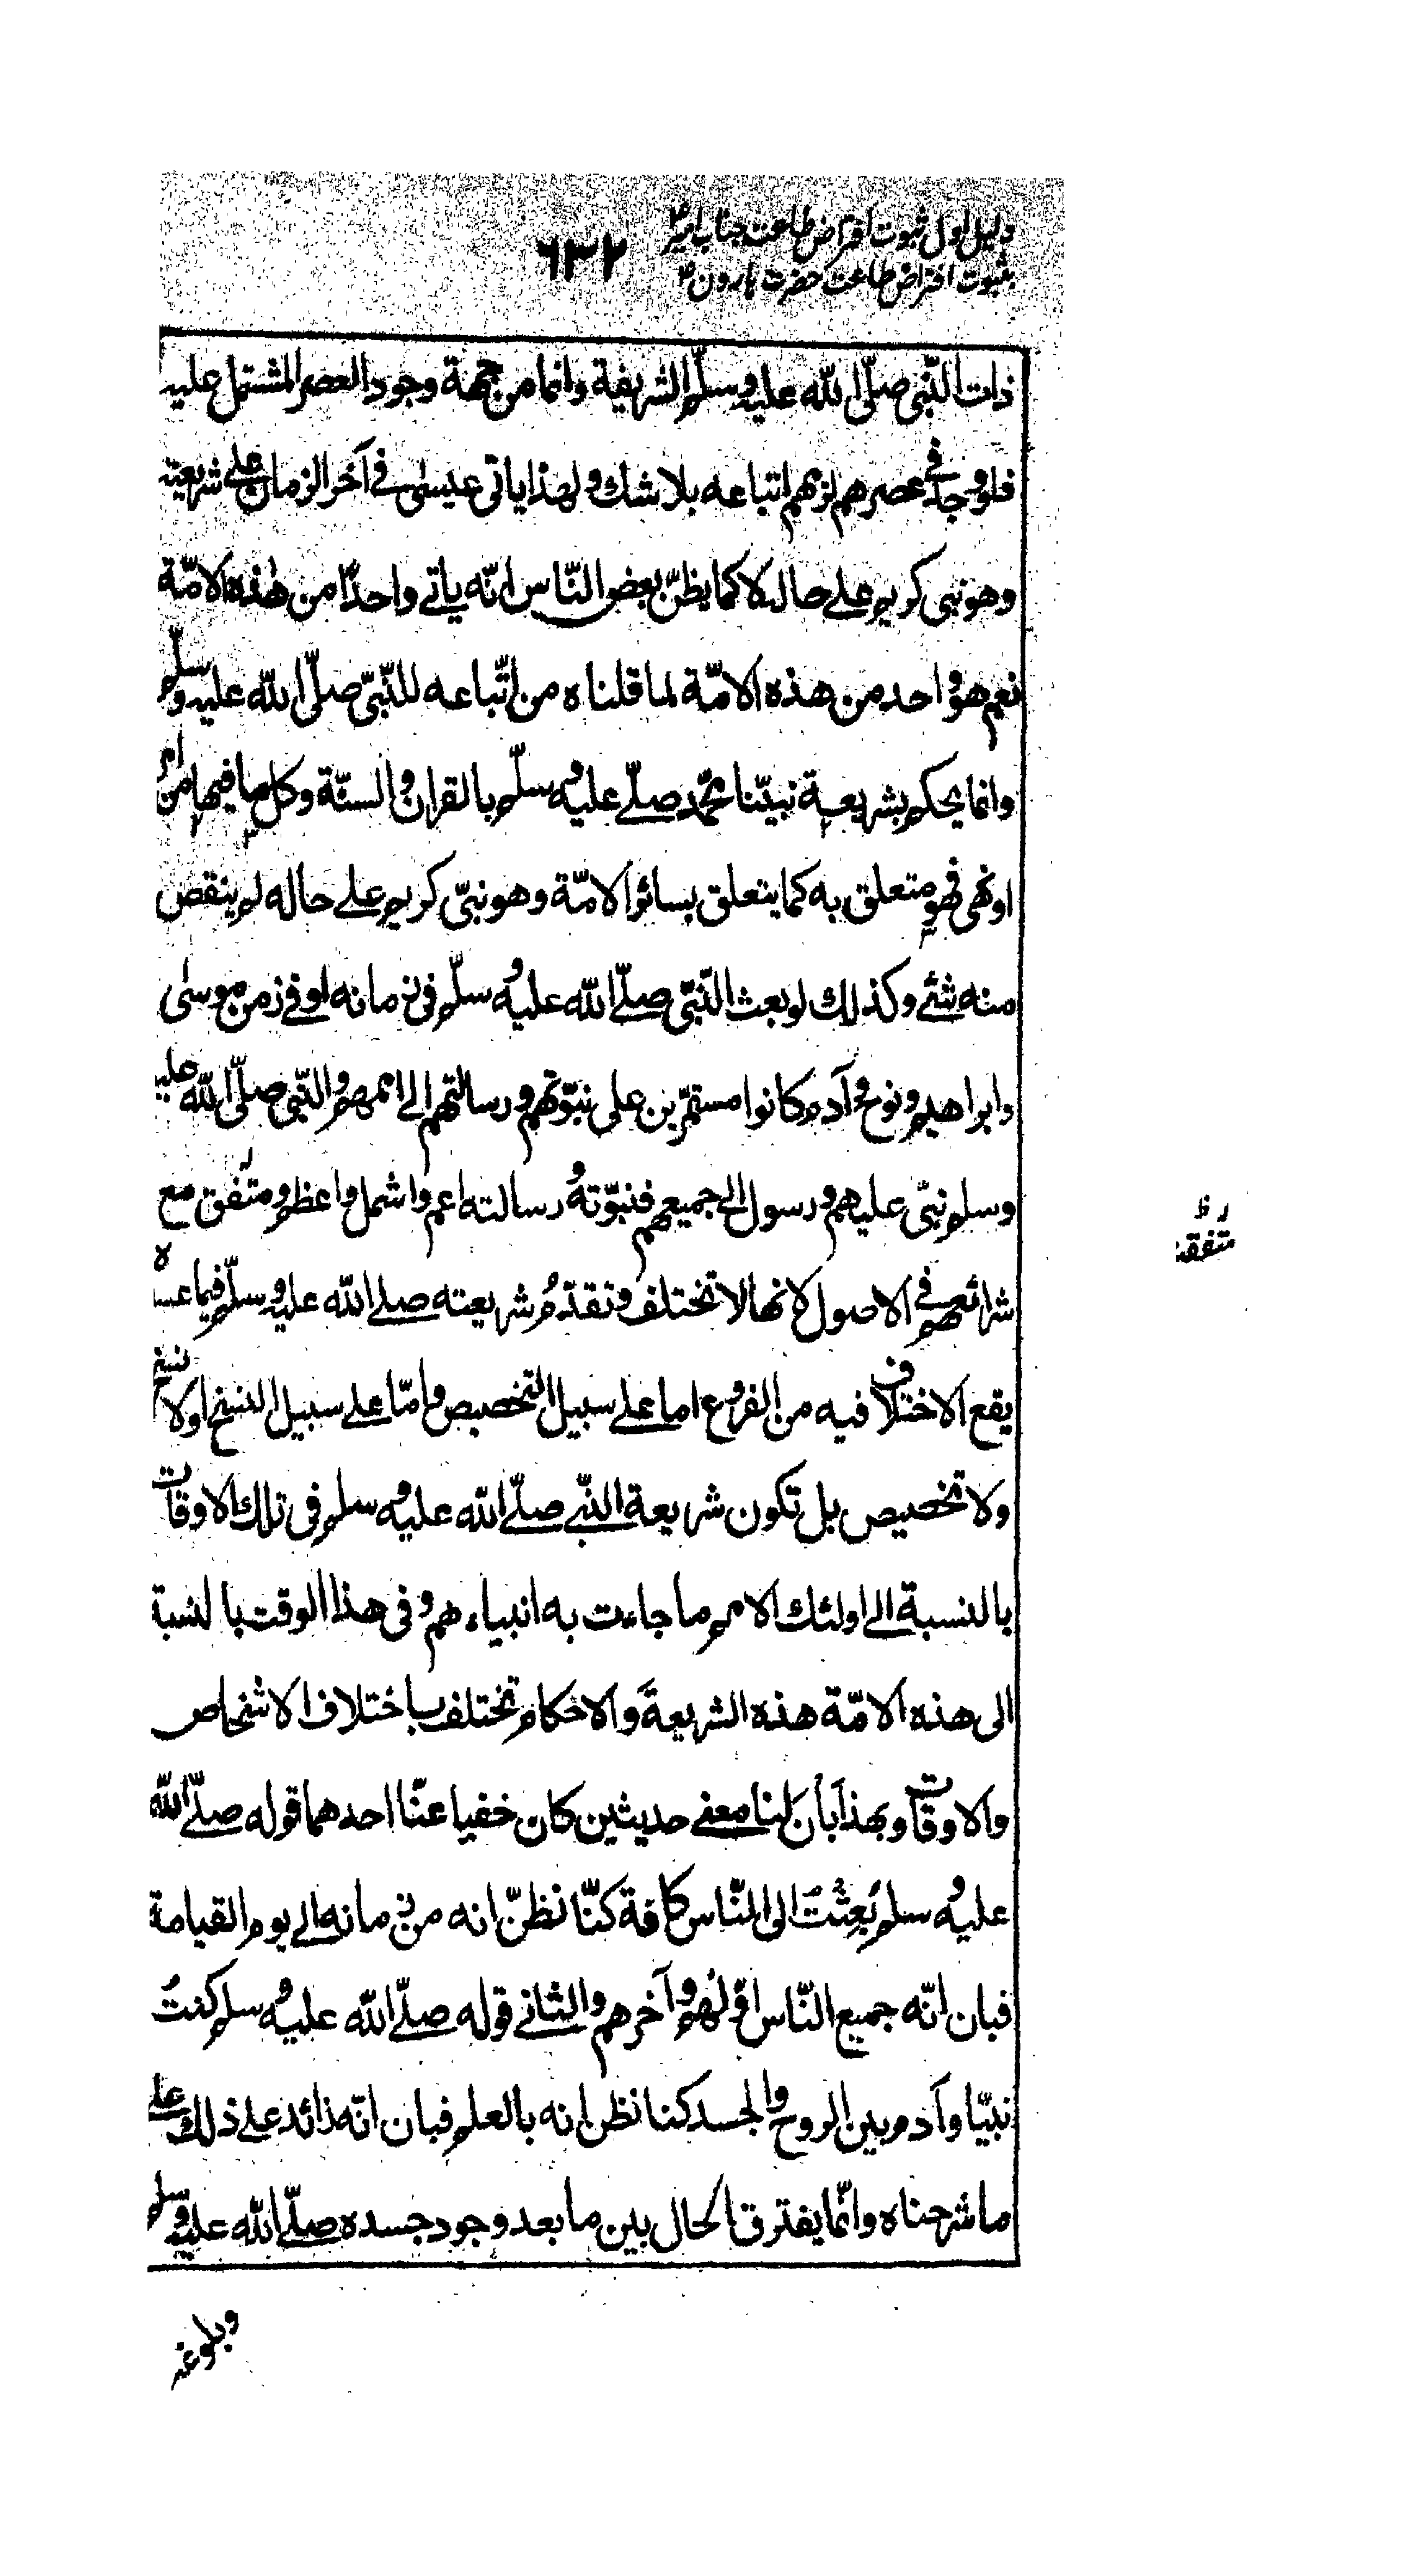 دلیل اول ثبوت افتراض طاعت جناب امیرؑ
۶۳۲
بثبوت افتراض طاعت حضرت ہارونؑ
ذات النّبى صلّى اللّه عليه وسلّم الشريفة وانما من جهة وجود العصر المشتمل عليه
فلو وجد فى عصرهم لزمهم اتباعه بلا شك ولهذا ياتى عيسىٰ فى آخر الزمان على شريعته
وهو نبى كريم على حاله لا كما يظنّ بعض النّاس انّه ياتى واحدًا من هٰذه الامّة
نعم هو واحد من هذه الامّة لما قلناه من اتّباعه للنّبىّ صلّى اللّه عليه وسلّم
وانما يحكم بشريعة نبيّنا محمّد صلّى عليه وسلّم بالقران والسنّة وكل ما فيهما من امر
او نهى فهو متعلق به كما يتعلق بسائر الامّة وهو نبىّ كريم على حاله لم ينقص
منه شئ وكذلك لو بعث النّبىّ صلّى اللّه عليه وسلّم فى زمانه او فى زمن موسىٰ
وابراهيم ونوح وآدم كانوا مستمرّين على نبوّتهم ورسالتهم الى اممهم والنّبى صلّى اللّه عليه
وسلم نبىّ عليهم ورسول الى جميعهم فنبوّته ورسالته اعم واشمل واعظم ومتّفق مع
ر ظ
متفقة
شرائعهم فى الاصول لانها لا تختلف وتقدّم شريعته صلى اللّه عليه وسلّم فيما عساه
يقع الاختلاف فيه من الفروع اما على سبيل التخصيص وامّا على سبيل النسخ او لا نسخ
ولا تخصيص بل تكون شريعة النّبى صلّى اللّه عليه وسلم فى تلك الاوقات
بالنسبة الى اولئك الامم ما جاءت به انبياءهم وفى هذا الوقت بالنسبة
الى هذه الامّة هذه الشريعة والاحكام تختلف باختلاف الاشخاص
والاوقات وبهذا بان لنا معنى حديثين كان خفيا عنّا احدهما قوله صلّى اللّه
عليه وسلم بُعِثْتُ الى النّاس كافة كنّا نظنّ انه من زمانه الى يوم القيامة
فبان انّه جميع النّاس اوّلهم وآخرهم والثانى قوله صلّى اللّه عليه وسلم كنتُ
نبيّا وآدم بين الروح والجسد كنا نظن انه بالعلم فبان انّه زائد على ذلك على
ما شرحناه وانّما يفترق الحال بين ما بعد وجود جسده صلّى اللّه عليه وسلم
وبلوغه